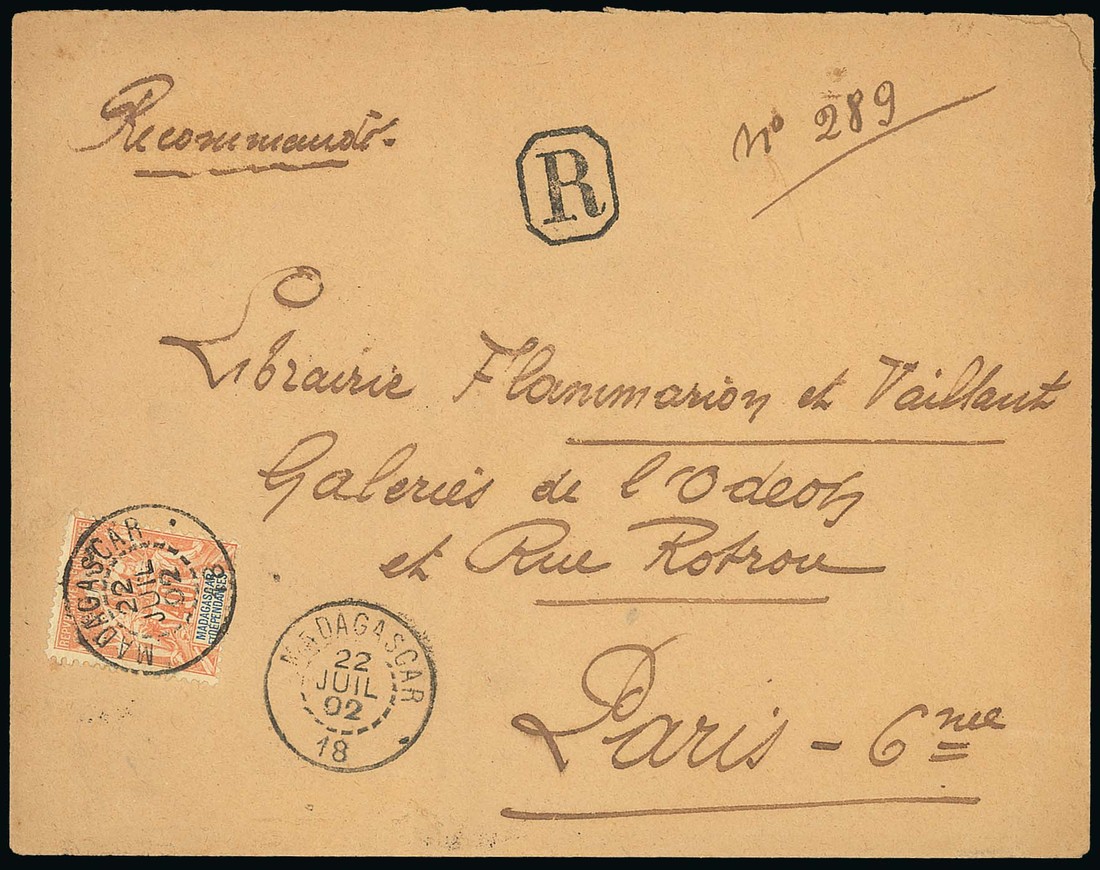 Recommandé.
R
nº 289
Librairie Flammarion et Vaillant
Galeries de l'Odeon
et Rue Rotrou
Paris - 6me
MADAGASCAR
22
JUIL
02
18
MADAGASCAR
ET DEPENDANCES
40
MADAGASCAR
22
JUIL
02
18